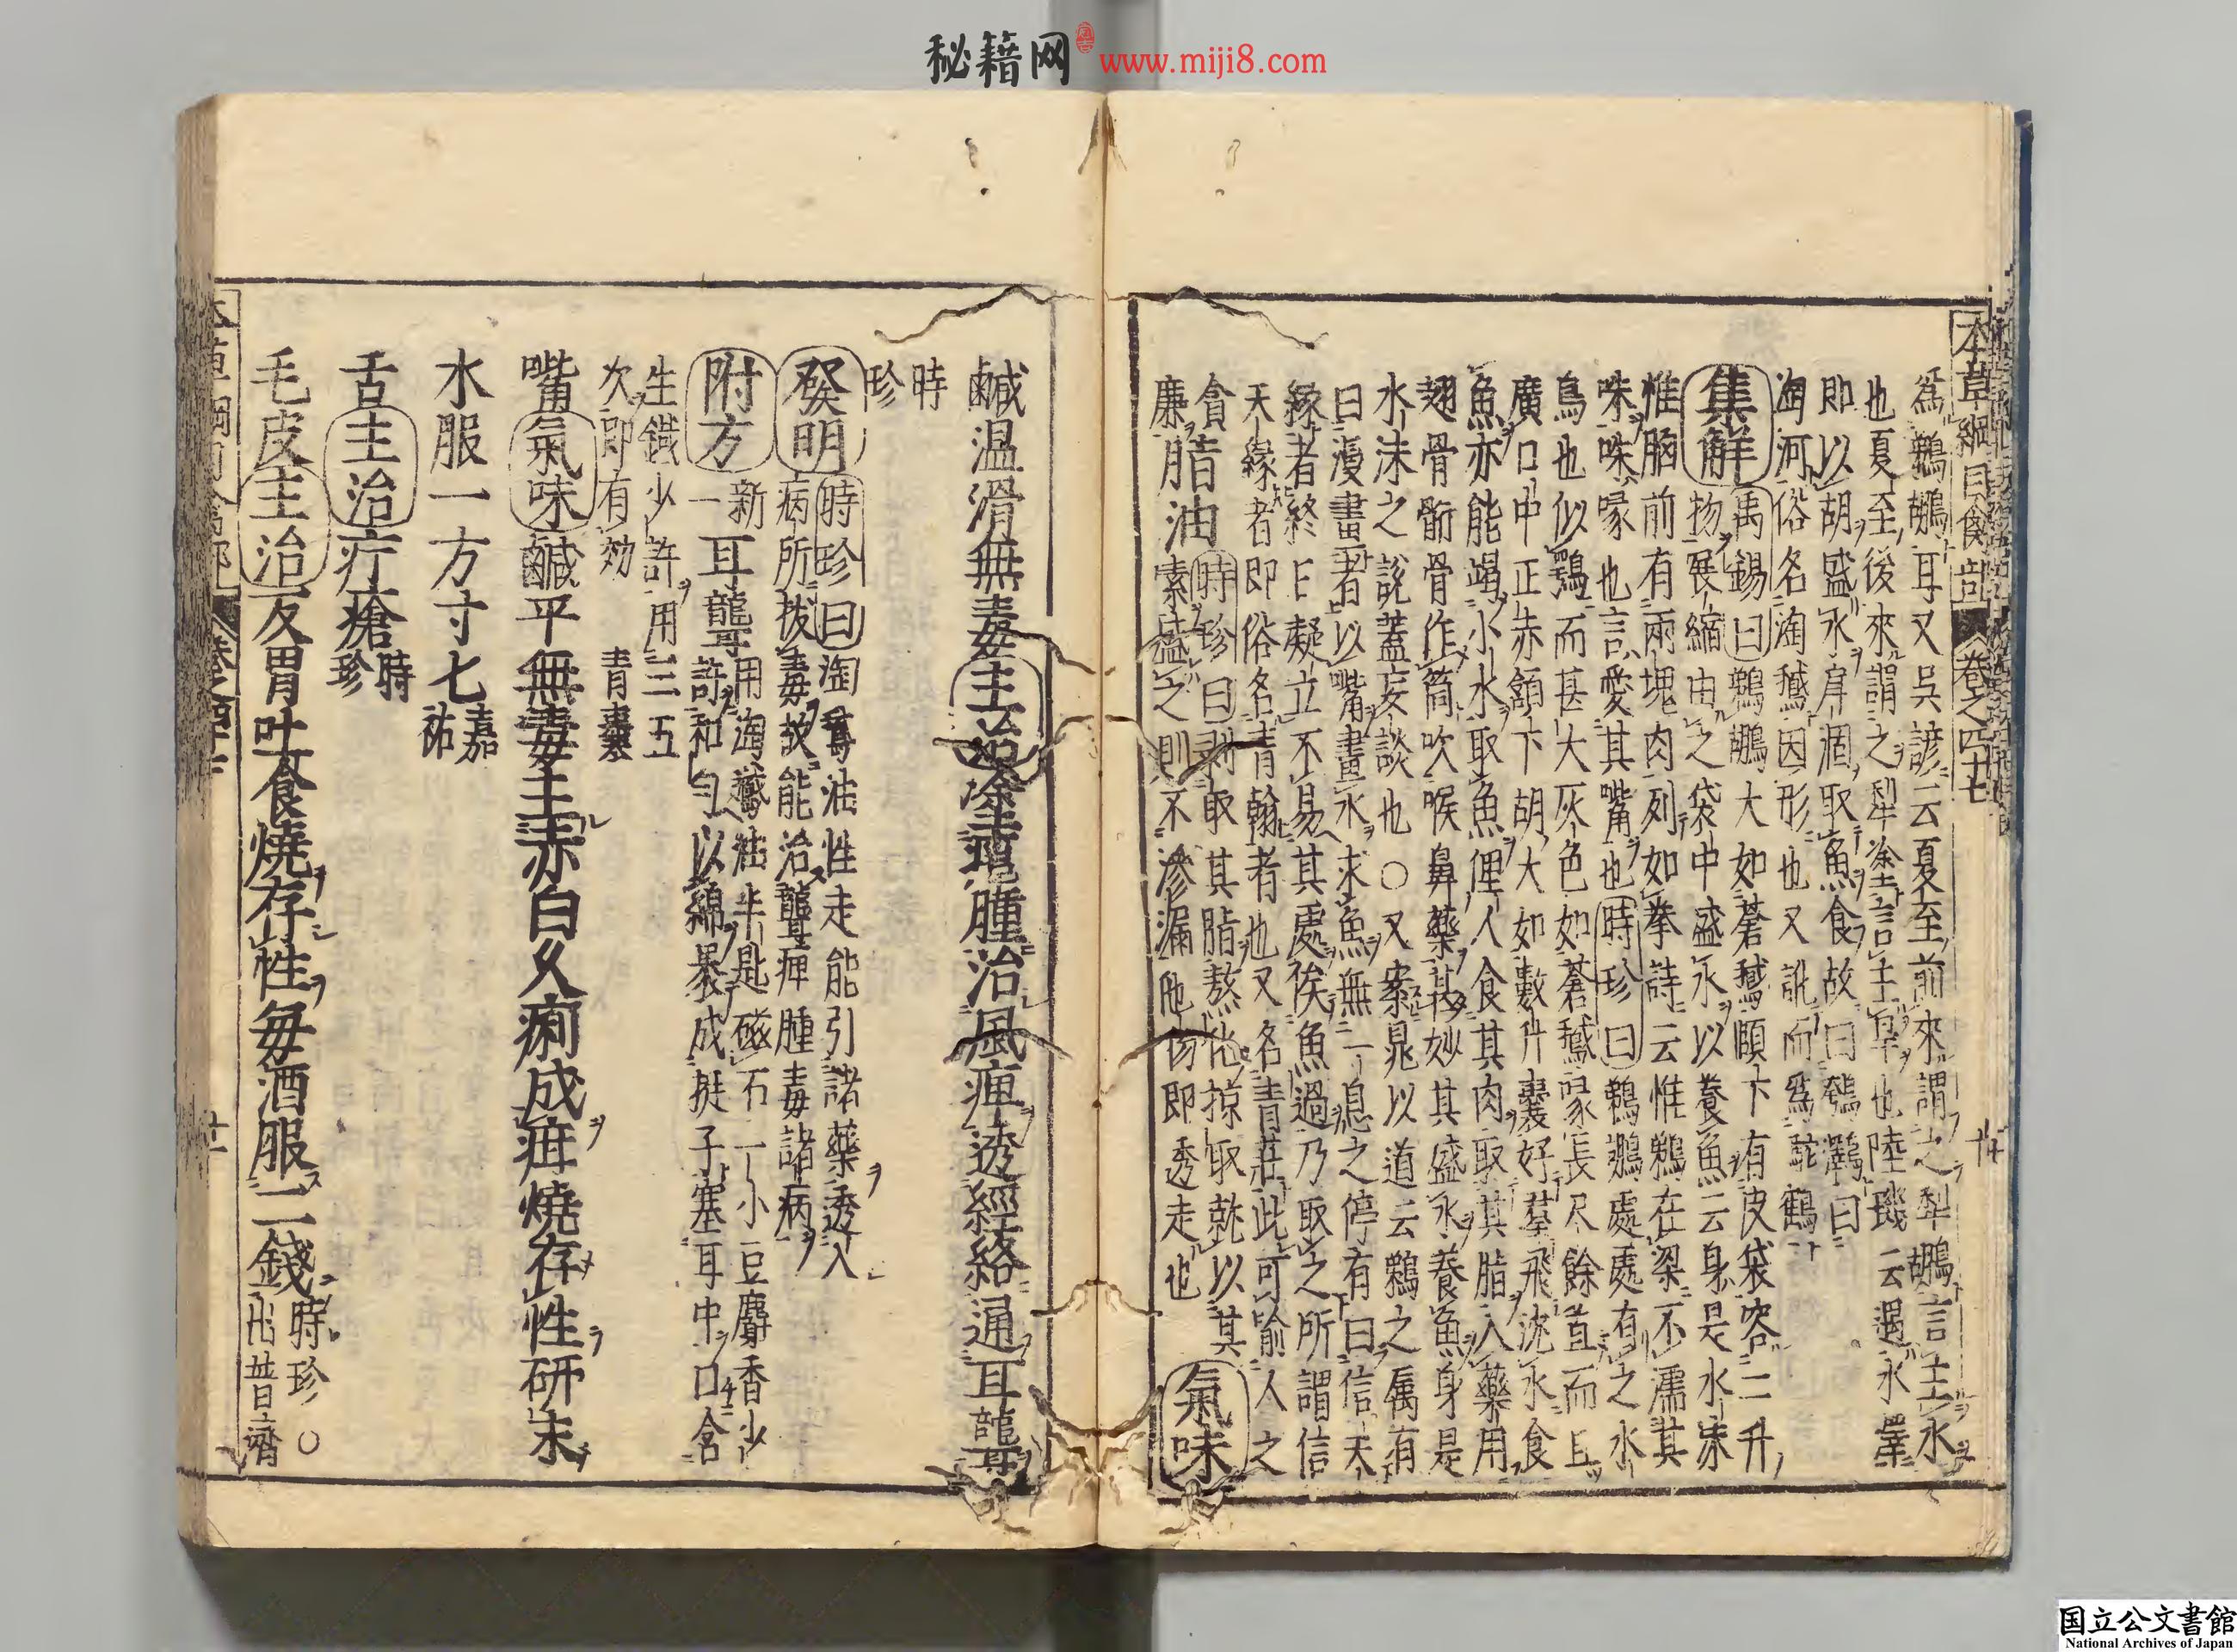 秘籍网 www.miji8.com
本草綱目禽部 卷之四十七
爲鵜鶘耳又吳諺云夏至前來謂之犁鶘言主水
也夏至後來謂之犁塗言主旱也陸璣云遇水澤
即以胡盛水戽涸取魚食故曰鴮鸅曰
淘河俗名淘鵞因形也又訛而爲駝鶴
集解 禹錫曰鵜鶘大如蒼鵞頤下有皮袋容二升
物展縮由之袋中盛水以養魚云身是水沫
惟胸前有兩塊肉列如拳詩云惟鵜在梁不濡其
咮咮喙也言愛其嘴也時珍曰鵜鶘處處有之水
鳥也似鶚而甚大灰色如蒼鵞喙長尺餘直而且
廣口中正赤頷下胡大如數升囊好羣飛沈水食
魚亦能竭小水取魚俚人食其肉取其脂入藥用
翅骨骱骨作筒吹喉鼻藥甚妙其盛水養魚身是
水沫之說蓋妄談也○又案晁以道云鵜之屬有
曰漫畫者以嘴畫水求魚無一息之停有曰信天
緣者終日凝立不易其處俟魚過乃取之所謂信
天緣者即俗名青翰者也又名青莊此可喻人之
貪
廉 脂油 時珍曰剥取其脂熬化掠取就以其
嗉盛之則不滲漏他物即透走也 氣味
鹹温滑無毒主治塗癰腫治風痺透經絡通耳聾
時
珍
發明 時珍曰淘鵞油性走能引諸藥透入
病所拔毒故能治聾痺腫毒諸病
附方 新
一 耳聾 用淘鵞油半匙磁石一小豆麝香少
許和勻以綿裹成挺子塞耳中口含
生鐵少許用三五
次即有効 青囊
嘴氣味鹹平無毒主赤白久痢成疳燒存性研末
水服一方寸匕 嘉
祐
舌主治疔瘡 時
珍
毛皮主治反胃吐食燒存性毎酒服二錢 時珍○
出普濟
国立公文書館
National Archives of Japan